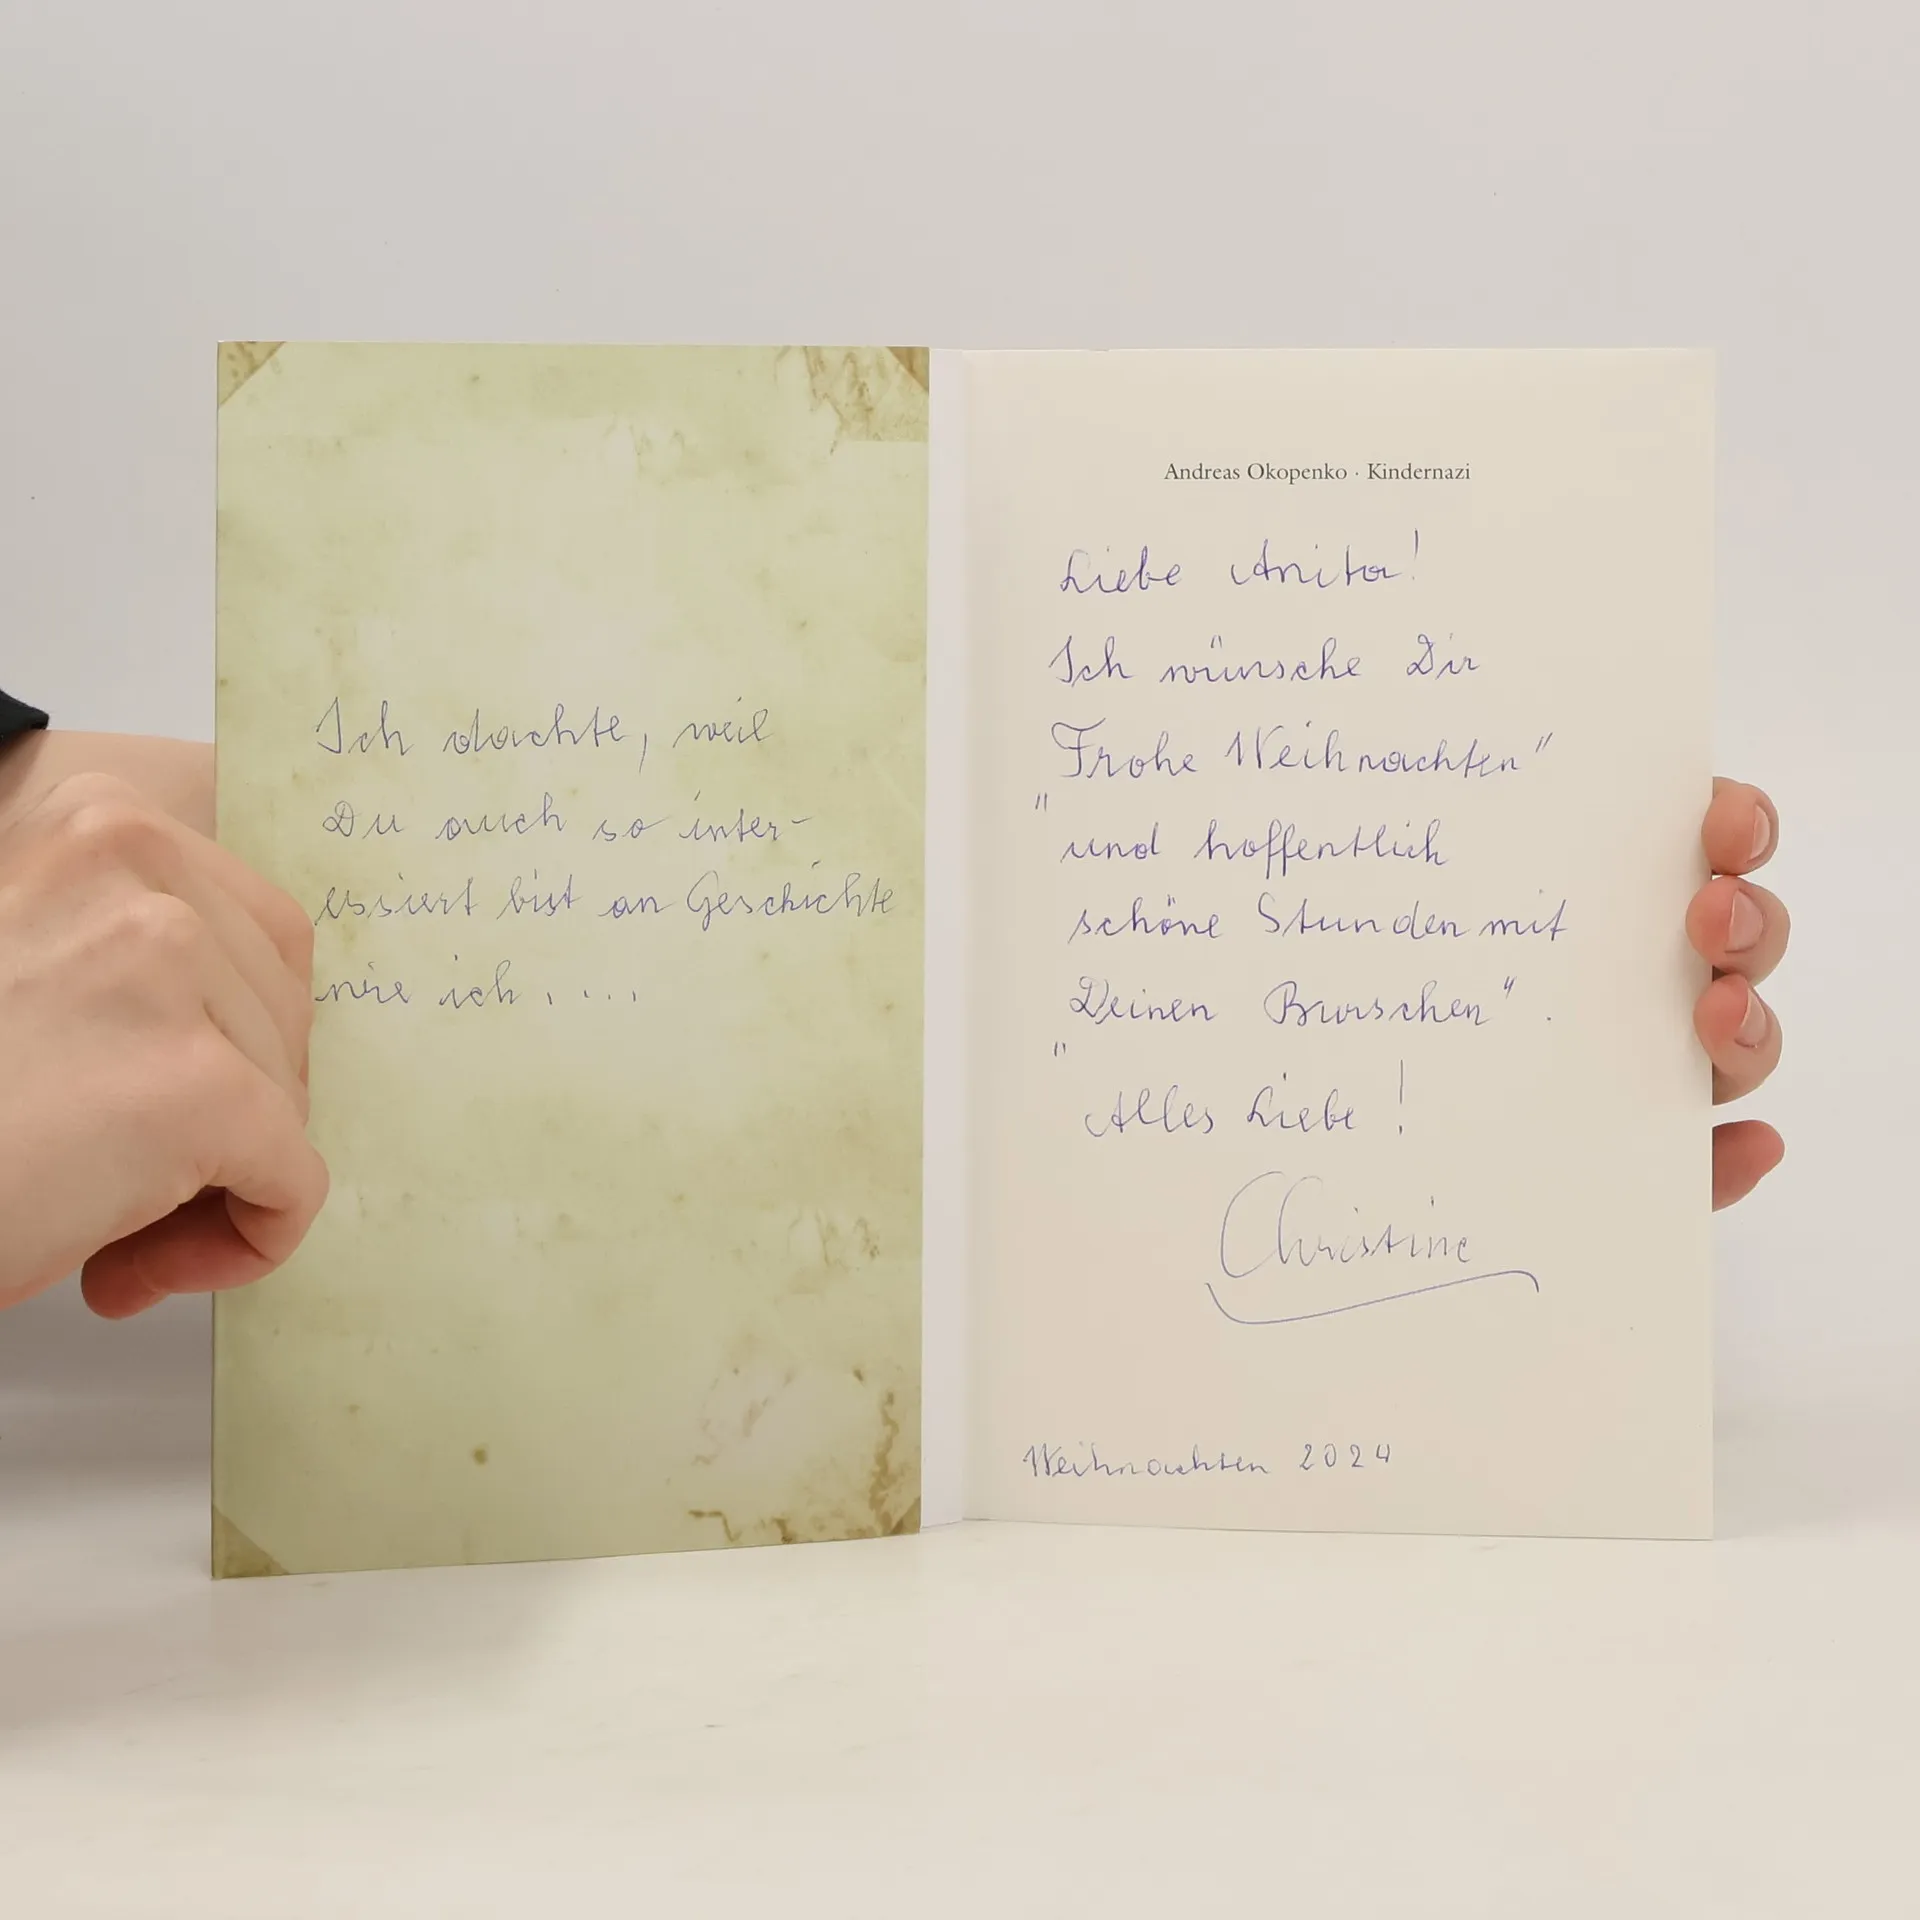 Ich dachte, weil
Du auch so inter-
essiert bist an Geschichte
wie ich....
Andreas Okopenko · Kindernazi
Liebe Anita!
Ich wünsche Dir
"Frohe Weihnachten"
und hoffentlich
"schöne Stunden mit
Deinen Burschen".
Alles Liebe!
Christine
Weihnachten 2024